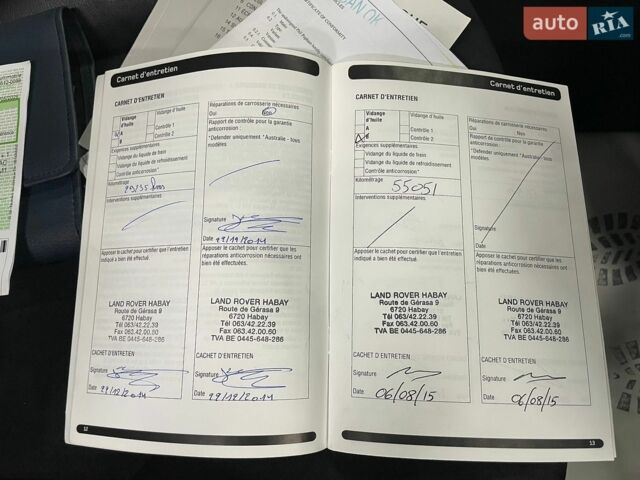 auto RIA.com
CERTIFICATE OF CONFORMITY
Carnet d'entretien
CARNET D'ENTRETIEN
Vidange d'huile
A
B
Vidange d'huile
Contrôle 1
Contrôle 2
Exigences supplémentaires
Vidange du liquide de frein
Vidange du liquide de refroidissement
Contrôle anticorrosion*
Kilométrage
Interventions supplémentaires
Apposer le cachet pour certifier que l'entretien
indiqué a bien été effectué.
LAND ROVER HABAY
Route de Gérasa 9
6720 Habay
Tél 063/42.22.39
Fax 063.42.00.60
TVA BE 0445-648-286
CACHET D'ENTRETIEN
Signature
Date 29/12/2014
12
Réparations de carrosserie nécessaires
Oui
Non
Rapport de contrôle pour la garantie
anticorrosion :
*Defender uniquement *Australie - tous
modèles
Signature
Date 29/12/2014
Apposer le cachet pour certifier que les
réparations anticorrosion nécessaires ont
bien été effectuées.
LAND ROVER HABAY
Route de Gérasa 9
6720 Habay
Tél 063/42.22.39
Fax 063.42.00.60
TVA BE 0445-648-286
CACHET D'ENTRETIEN
Signature
Date 29/12/2014
Carnet d'entretien
CARNET D'ENTRETIEN
Vidange d'huile
A
B
Vidange d'huile
Contrôle 1
Contrôle 2
Exigences supplémentaires
Vidange du liquide de frein
Vidange du liquide de refroidissement
Contrôle anticorrosion*
Kilométrage
55051
Interventions supplémentaires
Apposer le cachet pour certifier que l'entretien
indiqué a bien été effectué.
LAND ROVER HABAY
Route de Gérasa 9
6720 Habay
Tél 063/42.22.39
Fax 063.42.00.60
TVA BE 0445-648-286
CACHET D'ENTRETIEN
Signature
Date 06/08/15
Réparations de carrosserie nécessaires
Oui
Non
Rapport de contrôle pour la garantie
anticorrosion :
*Defender uniquement *Australie - tous
modèles
Signature
Date
Apposer le cachet pour certifier que les
réparations anticorrosion nécessaires ont
bien été effectuées.
LAND ROVER HABAY
Route de Gérasa 9
6720 Habay
Tél 063/42.22.39
Fax 063.42.00.60
TVA BE 0445-648-286
CACHET D'ENTRETIEN
Signature
Date 06/08/15
13